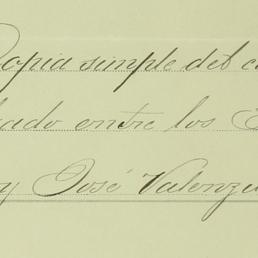 Copia simple del c
ado entre los E
y José Valenzu